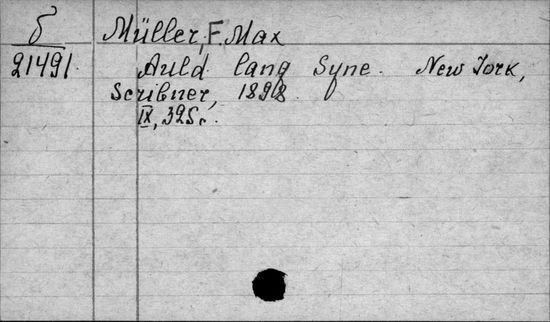 б
21491.
Müller, F. Max
Auld lang Syne. New York,
Scribner, 1898.
IX, 325 с.